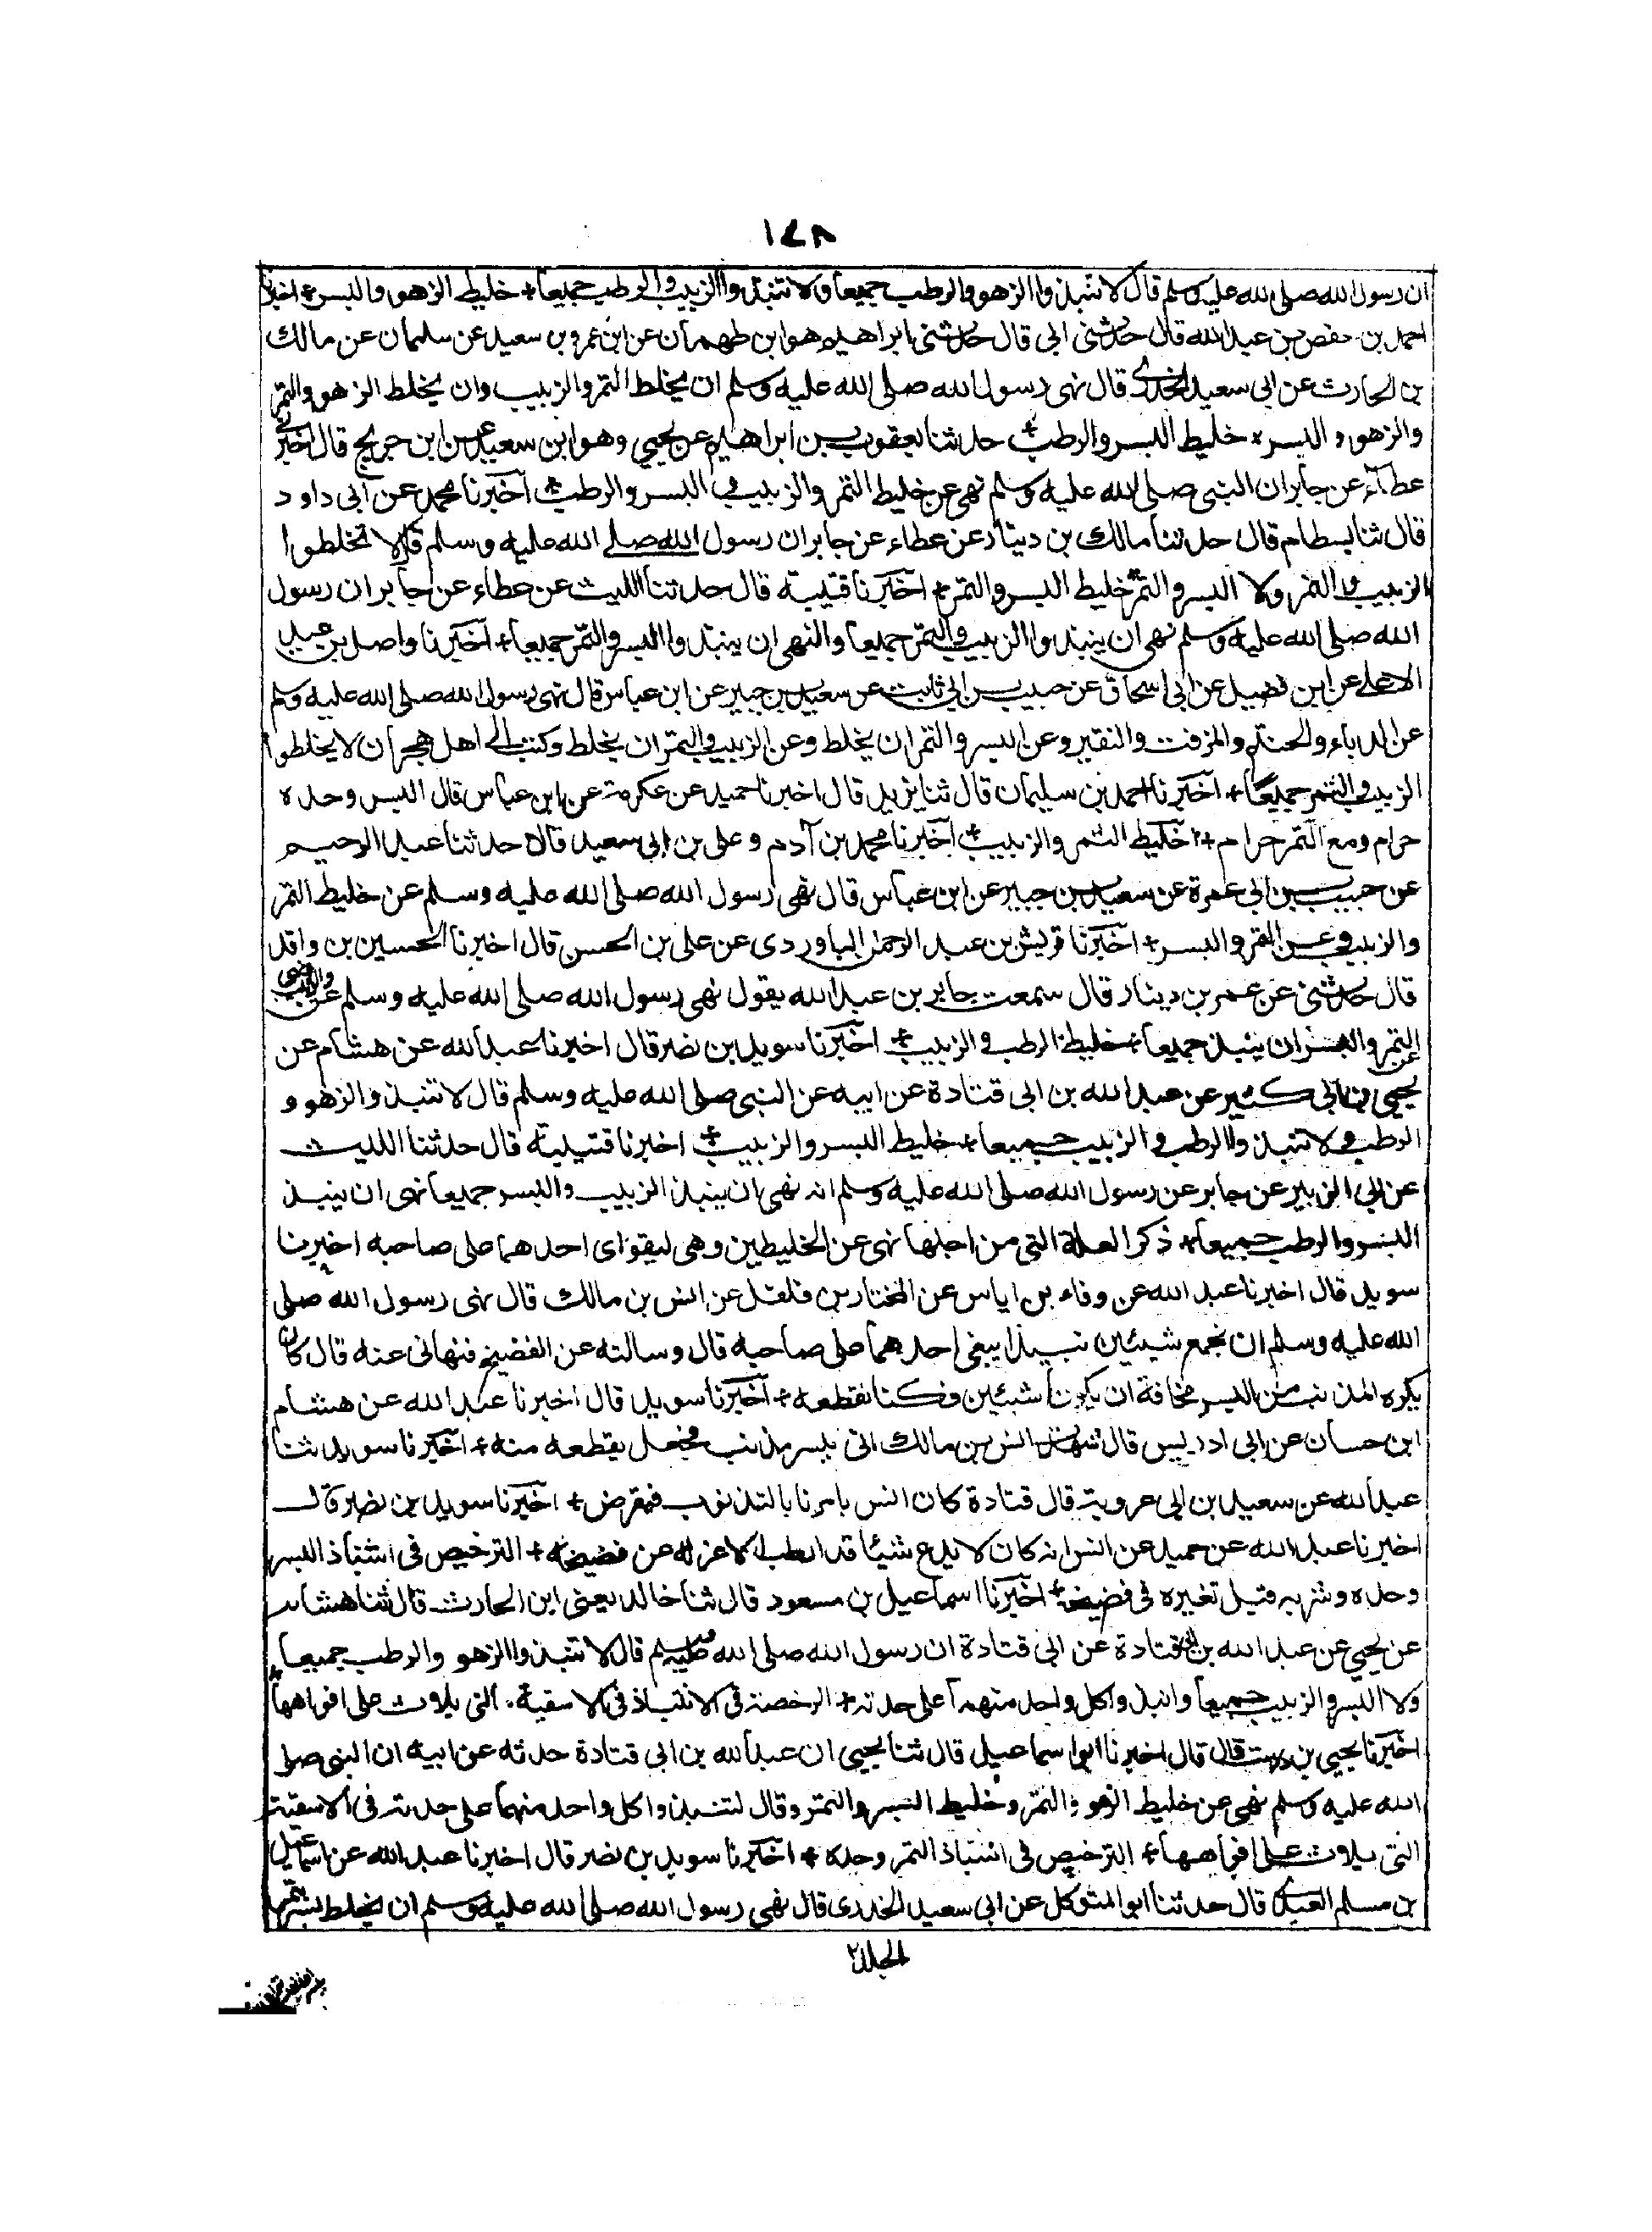 ١٤٨
ان رسول الله صلى الله عليه وسلم قال لا تنبذوا الزهو والرطب جميعا ولا تنبذوا الزبيب والرطب جميعا + خليط الزهو والبسر + اخبرنا
احمد بن حفص بن عبد الله قال حدثنى ابى قال حدثنى ابراهيم هو ابن طهمان عن ابن عمرو بن سعيد عن سليمان عن مالك
بن الحارث عن ابى سعيد الخدرى قال نهى رسول الله صلى الله عليه وسلم ان يخلط التمر والزبيب وان يخلط الزهو والتمر
والزهو والبسر ٭ خليط البسر والرطب + حدثنا يعقوب بن ابراهيم عن يحيى وهو ابن سعيد عن ابن جريج قال اخبرنى
عطاء عن جابر ان النبى صلى الله عليه وسلم نهى عن خليط التمر والزبيب والبسر والرطب + اخبرنا محمد عن ابى داود
قال ثنا بسطام قال حدثنا مالك بن دينار عن عطاء عن جابر ان رسول الله صلى الله عليه وسلم قال لا تخلطوا
الزبيب والتمر ولا البسر والتمر خليط البسر والتمر + اخبرنا قتيبة قال حدثنا الليث عن عطاء عن جابر ان رسول
الله صلى الله عليه وسلم نهى ان ينبذوا الزبيب والتمر جميعا والنهى ان ينبذوا البسر والتمر جميعا + اخبرنا واصل بن عبد
الاعلى عن ابن فضيل عن ابى اسحاق عن حبيب بن ابى ثابت عن سعيد بن جبير عن ابن عباس قال نهى رسول الله صلى الله عليه وسلم
عن الدباء والحنتم والمزفت والنقير وعن البسر والتمر ان يخلط وعن الزبيب والتمر ان يخلط وكتب الى اهل هجر ان لا يخلطوا
الزبيب والتمر جميعا + اخبرنا احمد بن سليمان قال ثنا يزيد قال اخبرنا حميد عن عكرمة عن ابن عباس قال البسر وحده
حرام ومع التمر حرام + خليط التمر والزبيب + اخبرنا محمد بن آدم وعلى بن ابى سعيد قالا حدثنا عبد الرحيم
عن حبيب بن ابى عمرة عن سعيد بن جبير عن ابن عباس قال نهى رسول الله صلى الله عليه وسلم عن خليط التمر
والزبيب وعن التمر والبسر + اخبرنا قريش بن عبد الرحمن الباوردى عن على بن الحسن قال اخبرنا الحسين بن واقد
قال حدثنى عن عمر بن دينار قال سمعت جابر بن عبد الله يقول نهى رسول الله صلى الله عليه وسلم عن
التمر والبسر ان ينبذ جميعا + خليط الرطب والزبيب + اخبرنا سويد بن نصر قال اخبرنا عبد الله عن هشام عن
يحيى بن ابى كثير عن عبد الله بن ابى قتادة عن ابيه عن النبى صلى الله عليه وسلم قال لا تنبذوا الزهو و
الرطب ولا تنبذوا الرطب والزبيب جميعا + خليط البسر والزبيب + اخبرنا قتيبة قال حدثنا الليث
عن ابى الزبير عن جابر عن رسول الله صلى الله عليه وسلم انه نهى ان ينبذ الزبيب والبسر جميعا نهى ان ينبذ
البسر والرطب جميعا + ذكر العلة التى من اجلها نهى عن الخليطين وهى ليقواى احدهما على صاحبه اخبرنا
سويد قال اخبرنا عبد الله عن وفاء بن اياس عن المختار بن فلفل عن انس بن مالك قال نهى رسول الله صلى
الله عليه وسلم ان نجمع شيئين نبيذا يبغى احدهما على صاحبه قال وسالته عن الفضيخ فنهانى عنه قال كان
يكره المذنب من البسر مخافة ان يكونا شيئين فكنا نقطعه + اخبرنا سويد قال اخبرنا عبد الله عن هشام
ابن حسان عن ابى ادريس قال شهدت انس بن مالك اتى ببسر مذنب فجعل يقطعه منه + اخبرنا سويد ثنا
عبد الله عن سعيد بن ابى عروبة قال قتادة كان انس يامرنا بالتذنوب فيقرض + اخبرنا سويد بن نصر قال
اخبرنا عبد الله عن حميد عن انس انه كان لا يدع شيئا قد ارطب الا عزله عن فضيخه + الترخيص فى انتباذ البسر
وحده وشربه قبل تغيره فى فضيخه + اخبرنا اسماعيل بن مسعود قال ثنا خالد يعنى ابن الحارث قال ثنا هشام
عن يحيى عن عبد الله بن ابى قتادة عن ابى قتادة ان رسول الله صلى الله عليه وسلم قال لا تنبذوا الزهو والرطب جميعا
ولا البسر والزبيب جميعا وانبذوا كل واحد منهما على حدته + الرخصة فى الانتباذ فى الاسقية التى يلاث على افواهها +
اخبرنا يحيى بن درست قال قال اخبرنا ابو اسماعيل قال ثنا يحيى ان عبد الله بن ابى قتادة حدثه عن ابيه ان النبى صلى
الله عليه وسلم نهى عن خليط الزهو والتمر وخليط البسر والتمر وقال لتنبذوا كل واحد منهما على حدته فى الاسقية
التى يلاث على افواهها + الترخيص فى انتباذ التمر وحده + اخبرنا سويد بن نصر قال اخبرنا عبد الله عن اسماعيل
بن مسلم العبدى قال حدثنا ابو المتوكل عن ابى سعيد الخدرى قال نهى رسول الله صلى الله عليه وسلم ان يخلط بسر بتمر
المجلد ٢